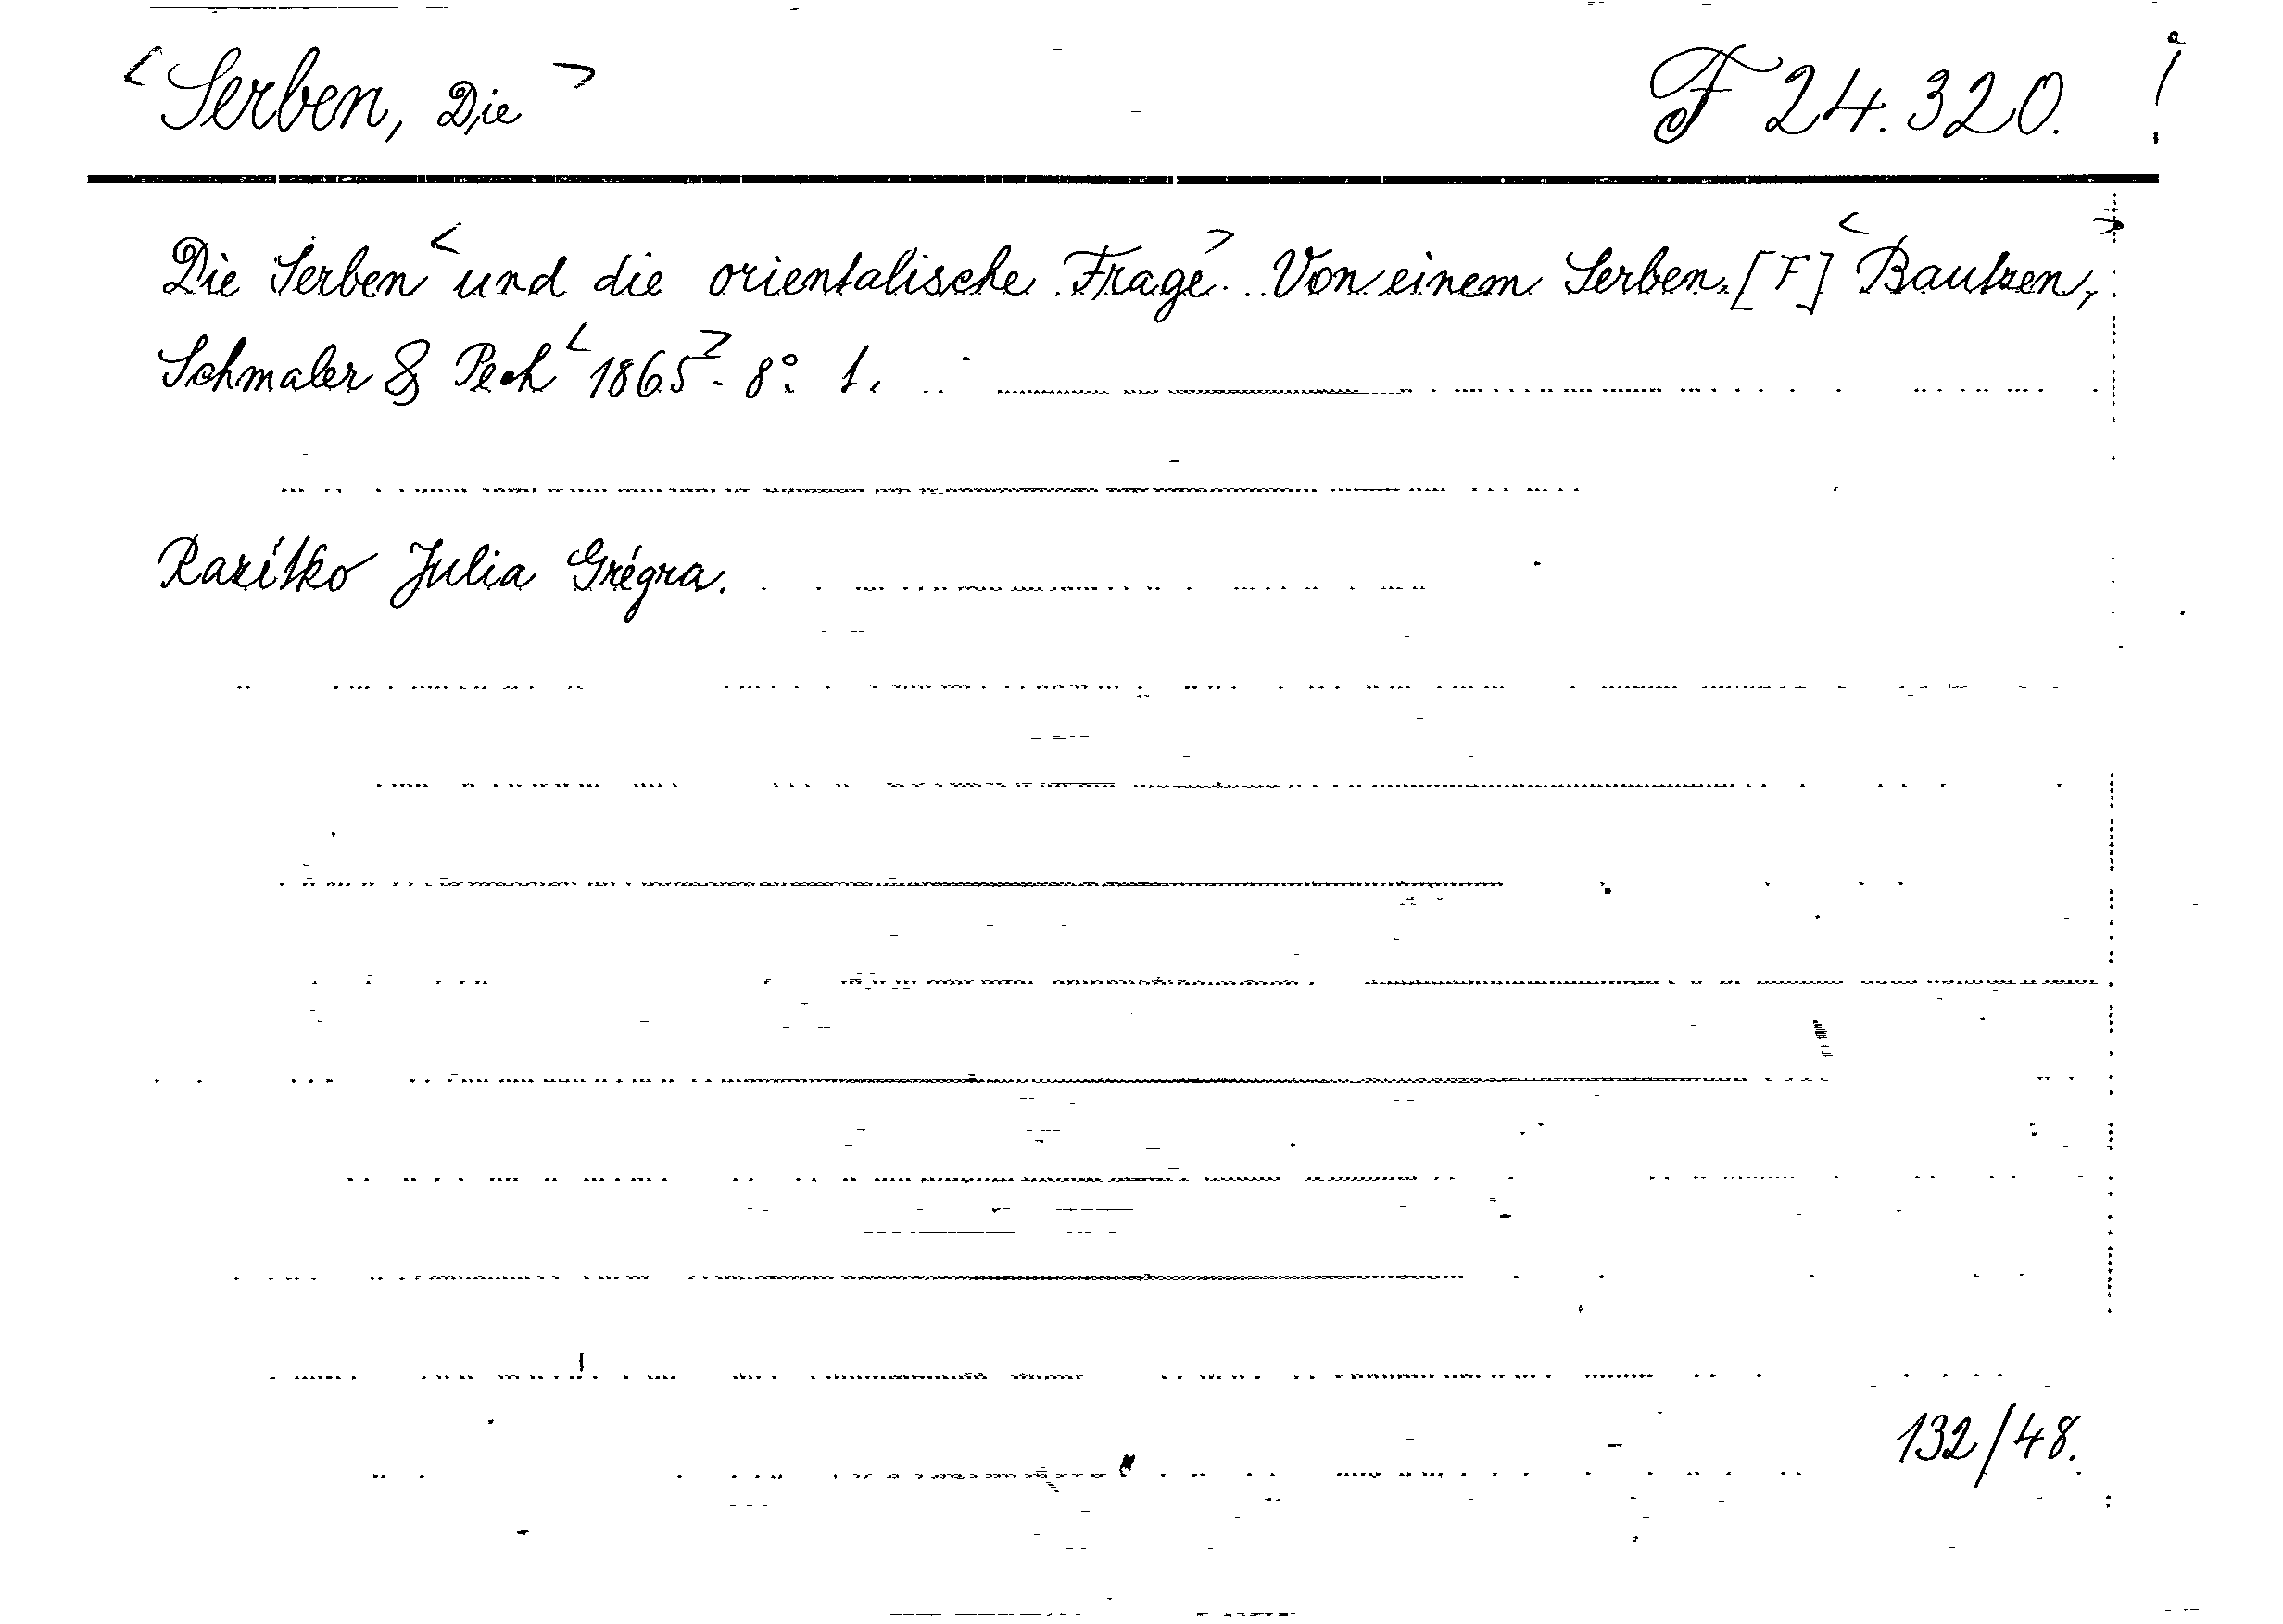 <Serben, Die> F 24.320. !
Die Serben <und die orientalische Frage>. Von einem Serben. [F] <Bautzen,>
Schmaler & Pech <1865>. 8°. 1.
Razítko Julia Grégra.
132/48.